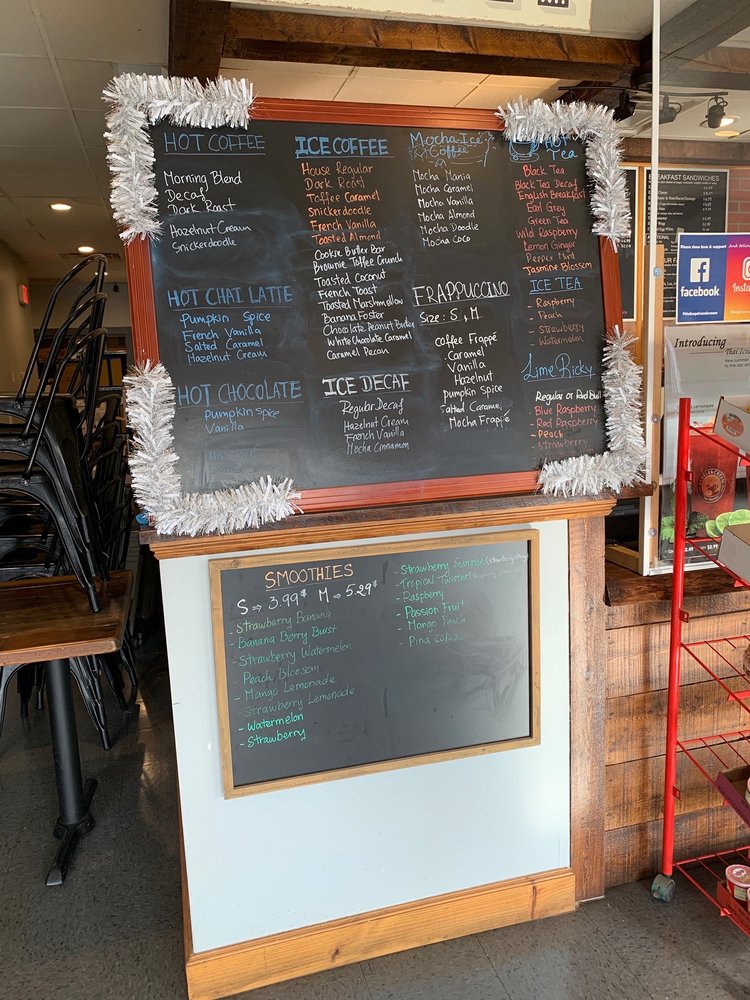 HOT COFFEE
Morning Blend
Decaf
Dark Roast
Hazelnut Cream
Snickerdoodle
HOT CHAI LATTE
Pumpkin Spice
French Vanilla
Salted Caramel
Hazelnut Cream
HOT CHOCOLATE
Pumpkin Spice
Vanilla
ICE COFFEE
House Regular
Dark Roast
Toffee Caramel
Snickerdoodle
French Vanilla
Toasted Almond
Cookie Butter Bar
Brownie Toffee Crunch
Toasted Coconut
French Toast
Toasted Marshmellow
Banana Foster
Chocolate Peanut Butter
White Chocolate Caramel
Caramel Pecan
ICE DECAF
Regular Decaf
Hazelnut Cream
French Vanilla
Mocha Cinnamon
Mocha Ice
Coffee
Mocha Mania
Mocha Caramel
Mocha Vanilla
Mocha Almond
Mocha Doodle
Mocha Coco
FRAPPUCCINO
Size: S, M
Coffee Frappé
Caramel
Vanilla
Hazelnut
Pumpkin Spice
Salted Caramel
Mocha Frappé
Hot
Tea
Black Tea
Black Tea Decaf
English Breakfast
Earl Grey
Green Tea
Wild Raspberry
Lemon Ginger
Pepper Mint
Jasmine Blossom
ICE TEA
- Raspberry
- Peach
- Strawberry
- Watermelon
Lime Ricky
Regular or Red Bull
- Blue Raspberry
- Red Raspberry
- Peach
- Strawberry
SMOOTHIES
S → 3.99$ M → 5.29$
- Strawberry Banana
- Banana Berry Burst
- Strawberry Watermelon
- Peach Blossom
- Mango Lemonade
- Strawberry Lemonade
- Watermelon
- Strawberry
- Strawberry Sunrise
- Tropical Twister
- Raspberry
- Passion Fruit
- Mango Peach
- Pina Colada
BREAKFAST SANDWICHES
facebook
Introducing